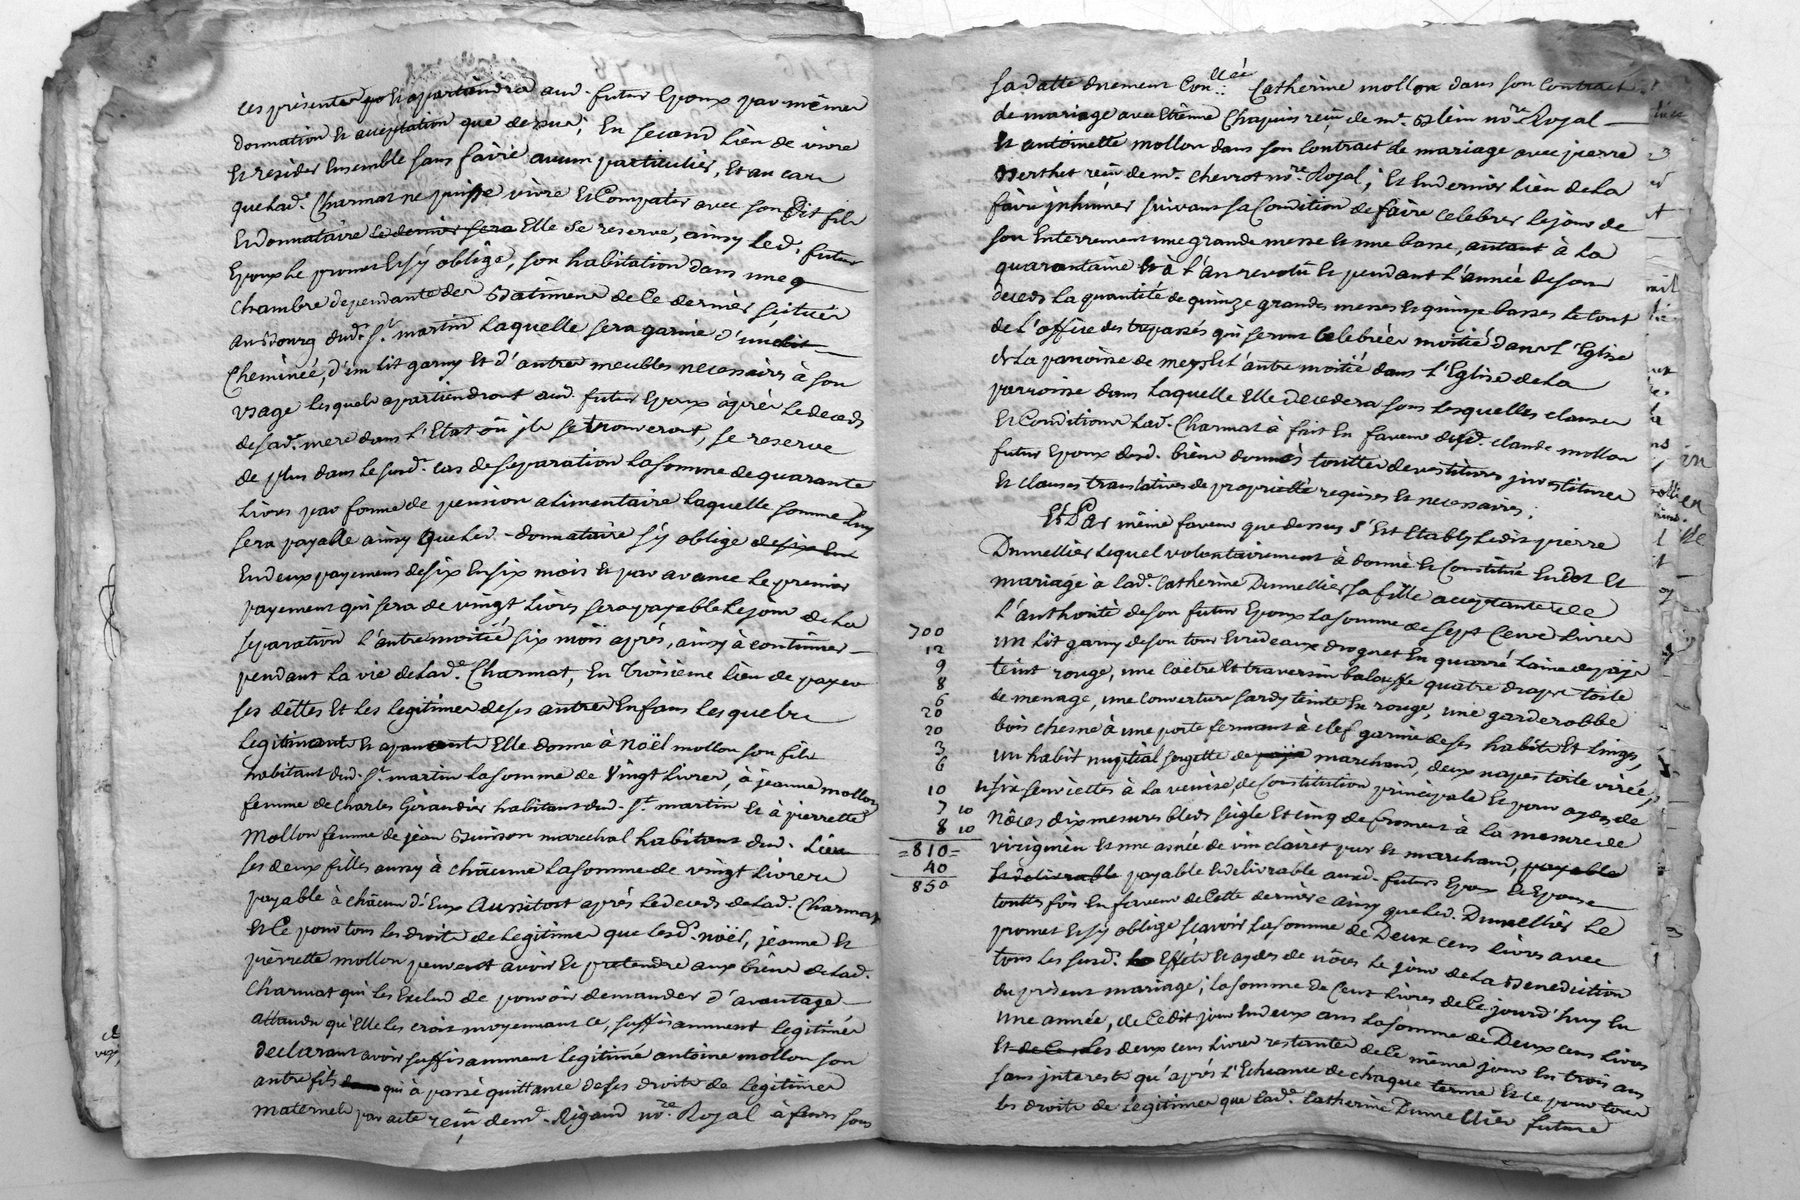 ces presentes et apartiendra aud. futur Epoux par mêmes
donnation et acceptation que dessus, En second Lieu de vivre
Et resider Ensemble sans faire aucun particulier, Et au cas
que Lad. Charmat ne puisse vivre Et Compatir avec son dit fils
Et donnataire Le dernier sera Elle se reserve, ainsy Led. futur
Epoux Le promet Et s'y oblige, son habitation dans une
chambre dependante des Batimens de Ce dernier, situés
au Bourg dud. St. martin Laquelle sera garnie d'un lit
Cheminée, d'un Lit garny Et d'autres meubles necessaires à son
usage Lesquels apartiendront aud. futur Epoux après Le deceds
de sad. mere dans l'Etat où ils se trouveront, se reserve
de plus dans Le susd. cas de separation La somme de quarante
Livres par forme de pension alimentaire Laquelle somme Luy
sera payable ainsy que Led. donnataire s'y oblige de six En
En deux payemens de six En six mois Et par avance Le premier
payement qui sera de vingt Livres sera payable Le jour de La
separation L'autre moitié six mois après, ainsy à continuer
pendant La vie de Lad.e Charmat, En Troisième Lieu de payer
ses dettes Et Les legitimes de ses autres Enfans Lesquels
Legitimant Et apanant Elle donne à Noël mollon son fils
habitant dud. St. martin La somme de Vingt Livres, à jeanne mollon
femme de Charles Giraudier habitans dud. St. martin Et à pierrette
Mollon femme de jean Buisson marechal habitans dud. Lieu
ses deux filles aussy à chacune La somme de vingt Livres
payable à chacun d'Eux Aussitost après Le deceds de Lad. Charmat
Et Ce pour tous Les droits de Legitimes que Lesd. Noël, jeanne Et
pierrette mollon peuvent avoir Et pretendre aux biens de Lad.
Charmat qui Les Exclud de pouvoir demander d'avantage
attendu qu'Elle Les croit moyennant ce, suffisamment Legitimés
declarant avoir suffisamment Legitimé antoine mollon son
autre fils qui à passé quittance de ses droits de Legitimes
maternels par acte reçu de mr. Rigaud nore. Royal à sous
sa datte Catherine mollon dans son Contract
de mariage avec Etienne Chapuis reçu de mr. Blein nore. Royal
Et antoinette mollon dans son Contract de mariage avec pierre
Berthet reçu de mr. Chevrot nore. Royal; Et En dernier Lieu de La
faire jnhumer suivant sa Condition de faire celebrer Le jour de
son Enterrement une grande messe Et une basse, autant à La
quarantaine Et à L'an revolu Et pendant L'année de son
deceds La quantité de quinze grandes messes Et quinze basses Le tout
de L'office des trepassés qui seront Celebrées moitié dans L'Eglise
de La paroisse de meys Et L'autre moitié dans l'Eglise de La
parroisse dans Laquelle Elle decedera sous Lesquelles clauses
Et Conditions Lad. Charmat à fait En faveur dud. claude mollon
futur Epoux desd. biens donnés touttes devestitures jnvestitures
Et clauses translatives de proprieté requises Et necessaires;
Et Par même faveur que dessus s'Est Etably Ledit pierre
Dumellier Lequel volontairement à donné Et Constitué En Dot Et
mariage à Lad. Catherine Dumellier sa fille acceptante de
L'authorité de son futur Epoux La somme de sept Cens Livres
un Lit garny de son tour Et rideaux drognet En quarré Laine de païs
teint rouge, une Coëtre Et traversin balouffe quatre draps toile
de menage, une Couverture sardy teinte En rouge, une garderobbe
bois chesne à une porte fermant à clef garnie de ses habits Et Linges,
un habit nuptial sergette de païs marchand, deux napes toile virée,
Et six serviettes à La venise de Constitution principale Et pour aydes de
Nôces dix mesures bleds seigle Et cinq de froment à La mesure de
virignieu Et une asnée de vin clairet pur Et marchand, payable
Et delivrable payable Et delivrable auxd. futurs Epoux Et Epouse
touttes fois En faveur de Cette dernière ainsy que Led. Dumellier Le
promet Et s'y oblige sçavoir La somme de Deux cens Livres avec
tous Les susd. Effets Et aydes de nôces Le jour de La Benediction
du present mariage; La somme de Cent Livres de Ce jourd'huy En
une année, de Cedit jour En deux ans La somme de Deux cens Livres
Et de Ce Les deux cens Livres restantes de Ce même jour En trois ans
sans jnterests qu'après L'Echeance de chaque terme Et ce pour tous
Les droits de Legitimes que Lad.e Catherine Dumellier future
700
12
9
8
6
20
20
3
6
10
7 10
8 10
=810=
40
850